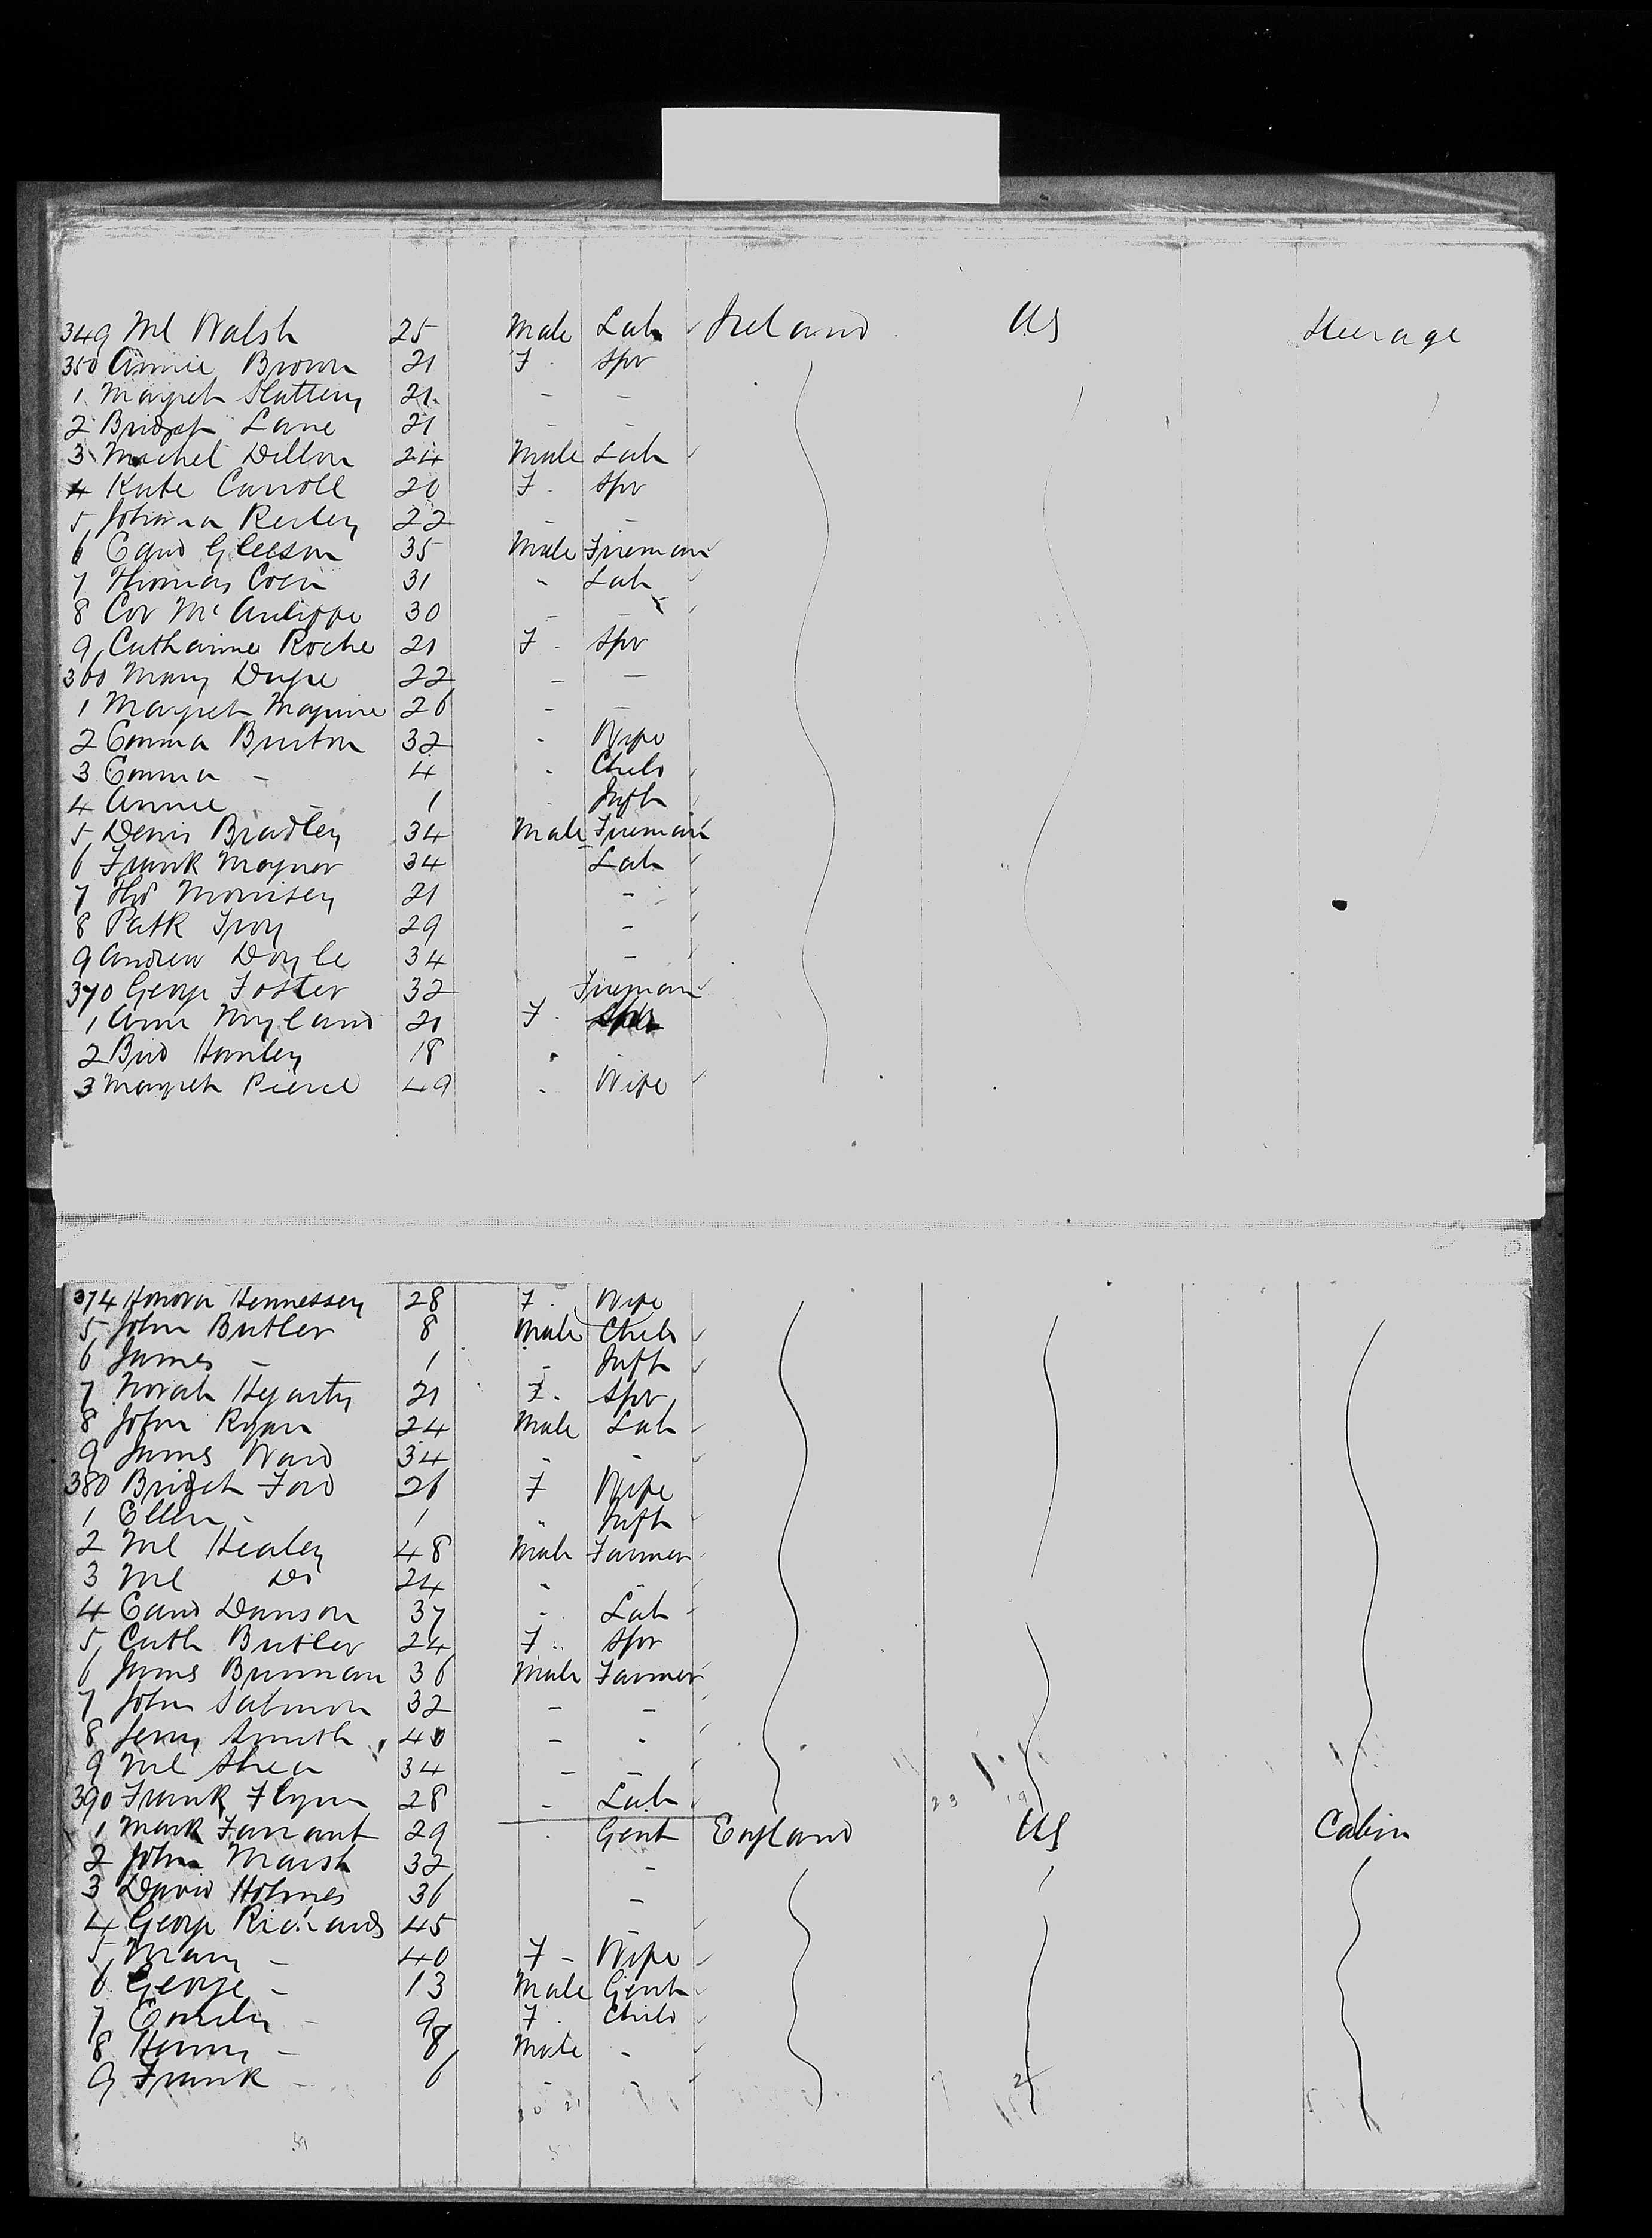 349 Ml Walsh 25 Male Lab Ireland US Steerage
350 Annie Brown 21 F. Spr
1 Margret Slattery 21 - -
2 Bridget Lane 21 - -
3 Michel Dillon 24 Male Lab
4 Kate Carroll 20 F. Spr
5 Johana 22 - -
6 Edwd Gleeson 35 Male Fireman
7 Thomas Coen 31 " Lab
8 Cor Mc Auliffe 30 - -
9 Catharine Roche 21 F. Spr
360 Mary 22 - -
1 Margret Maguire 26 - -
2 Emma Burton 32 " Wife
3 Emma - 4 " Child
4 Annie - 1 Inft
5 Denis Bradley 34 Male Fireman
6 Frank 34 - Lab
7 Thos Morrisey 21 -
8 Patk 29 -
9 Andrew Doyle 34 -
370 George Foster 32 Fireman
1 Ann 21 F. Spr
2 Brid Hanley 18 "
3 Margret Pierce 49 " Wife
374 Honora Hennessey 28 F. Wife
5 John Butler 8 Male Child
6 James - 1 - Inft
7 Norah Hegarty 21 F. Spr
8 John Ryan 24 Male Lab
9 James Ward 34 - -
380 Bridget Ford 26 F Wife
1 Ellen - 1 " Inft
2 Ml Healey 48 Male Farmer
3 Ml Do 24 " "
4 Edwd Dawson 37 " Lab
5 Cath Butler 24 F. Spr
6 James Brennan 36 Male Farmer
7 John Salmon 32 - -
8 Jerry Smith 40 - -
9 Ml Shea 34 - -
390 Frank Flynn 28 - Lab
1 Mark Farrant 29 " Gent England US Cabin
2 John Marsh 32 -
3 David Holmes 36 -
4 George Richards 45 -
5 Mary - 40 F - Wife
6 George - 13 Male Gent
7 Emily - 9 F. Child
8 Henry - 8 Male -
9 Frank - 6 - -